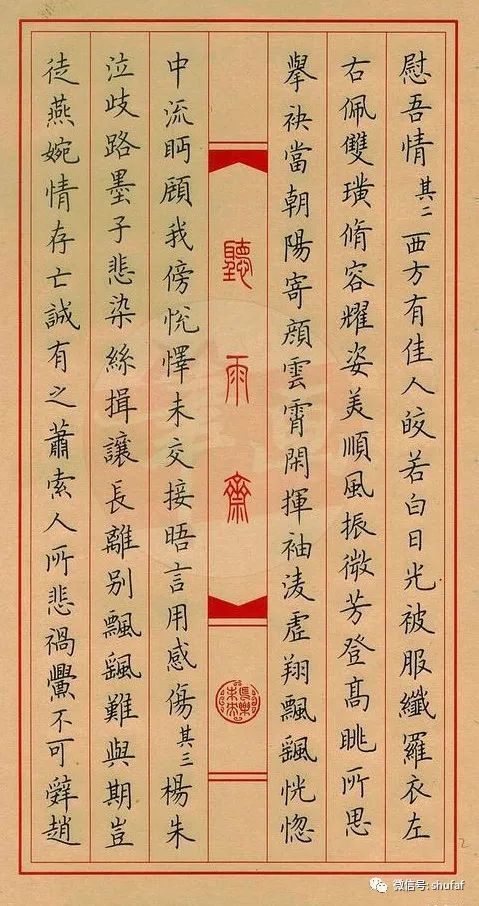 慰吾情其二西方有佳人皎若白日光被服纖羅衣左
右佩雙璜脩容耀姿美順風振微芳登高眺所思
擧袂當朝陽寄顔雲霄閑揮袖淩虛翔飄颻恍惚
聽雨齋
長樂未央
中流眄顧我傍悅懌未交接晤言用感傷其三楊朱
泣歧路墨子悲染絲揖讓長離別飄颻難與期豈
徒燕婉情存亡誠有之蕭索人所悲禍釁不可辭趙
2
微信号: shufaf